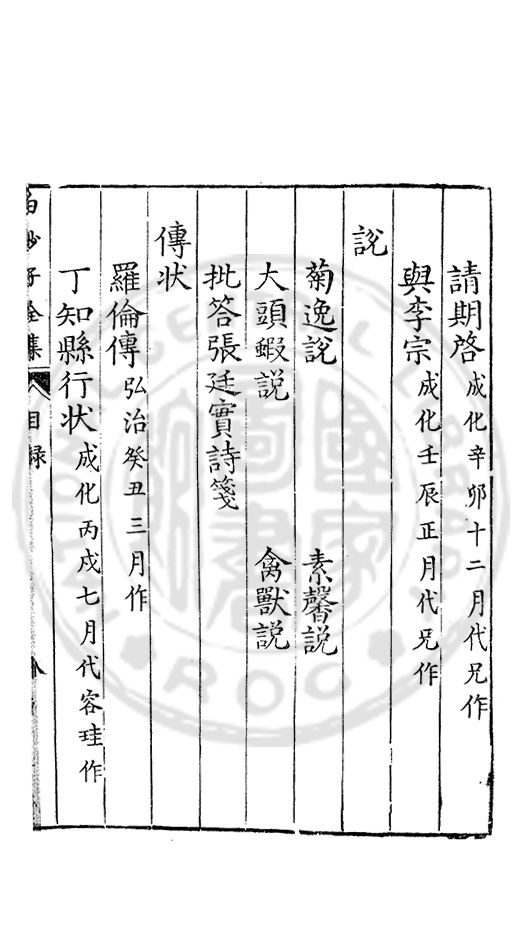 請期啓成化辛卯十二月代兄作
與李宗成化壬辰正月代兄作
說
菊逸說　素馨說
大頭蝦說　禽獸說
批答張廷實詩箋
傳状
羅倫傳弘治癸丑三月作
丁知縣行状成化丙戌七月代容珪作
白沙子全集　目録